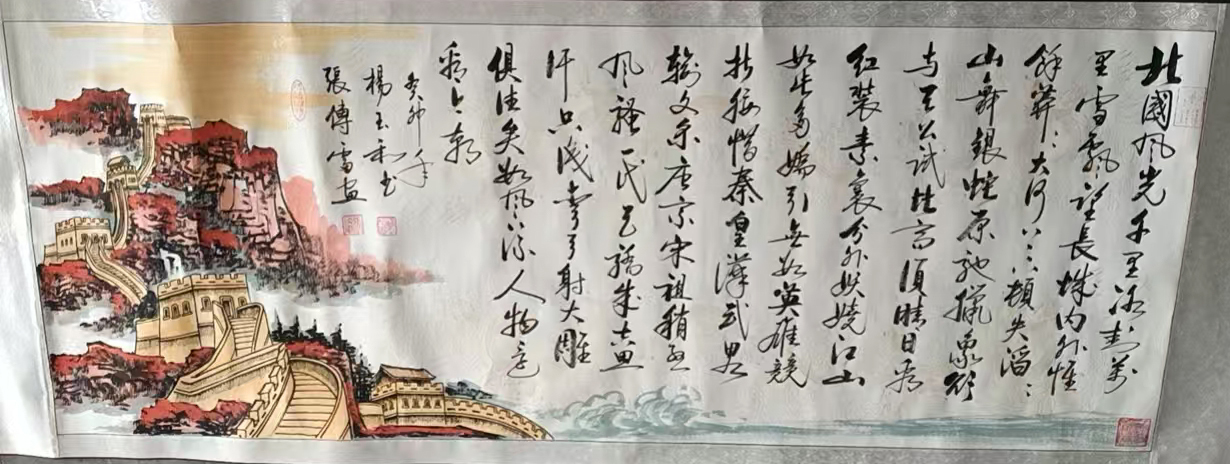 北國风光千里冰封萬
里雪飘望長城内外惟
餘莽：大河上下頓失滔：
山舞銀蛇原驰蠟象欲
与天公試比高須晴日看
红裝素裹分外妖嬈江山
如此多嬌引無数英雄競
折腰惜秦皇漢武略
输文采唐宗宋祖稍逊
风骚一代天骄成吉思
汗只识彎弓射大雕
俱往矣数风流人物还
看今朝
癸卯年
楊玉和书
張傳雷画